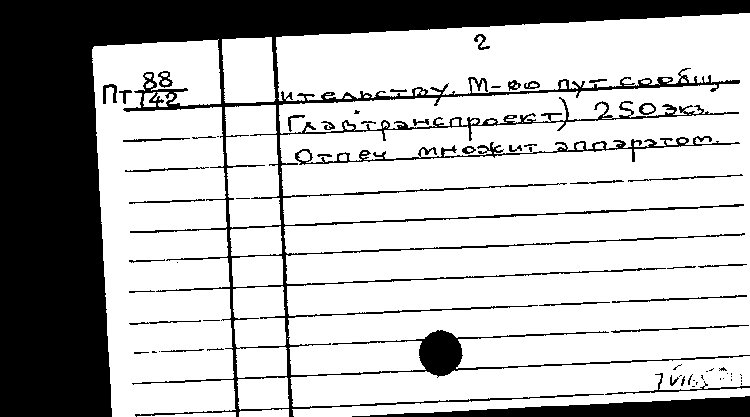 2
Пт 88
142
ительству. М-во пут сообщ
Главтранспроект) 250 экз.
Отпеч множит аппаратом.